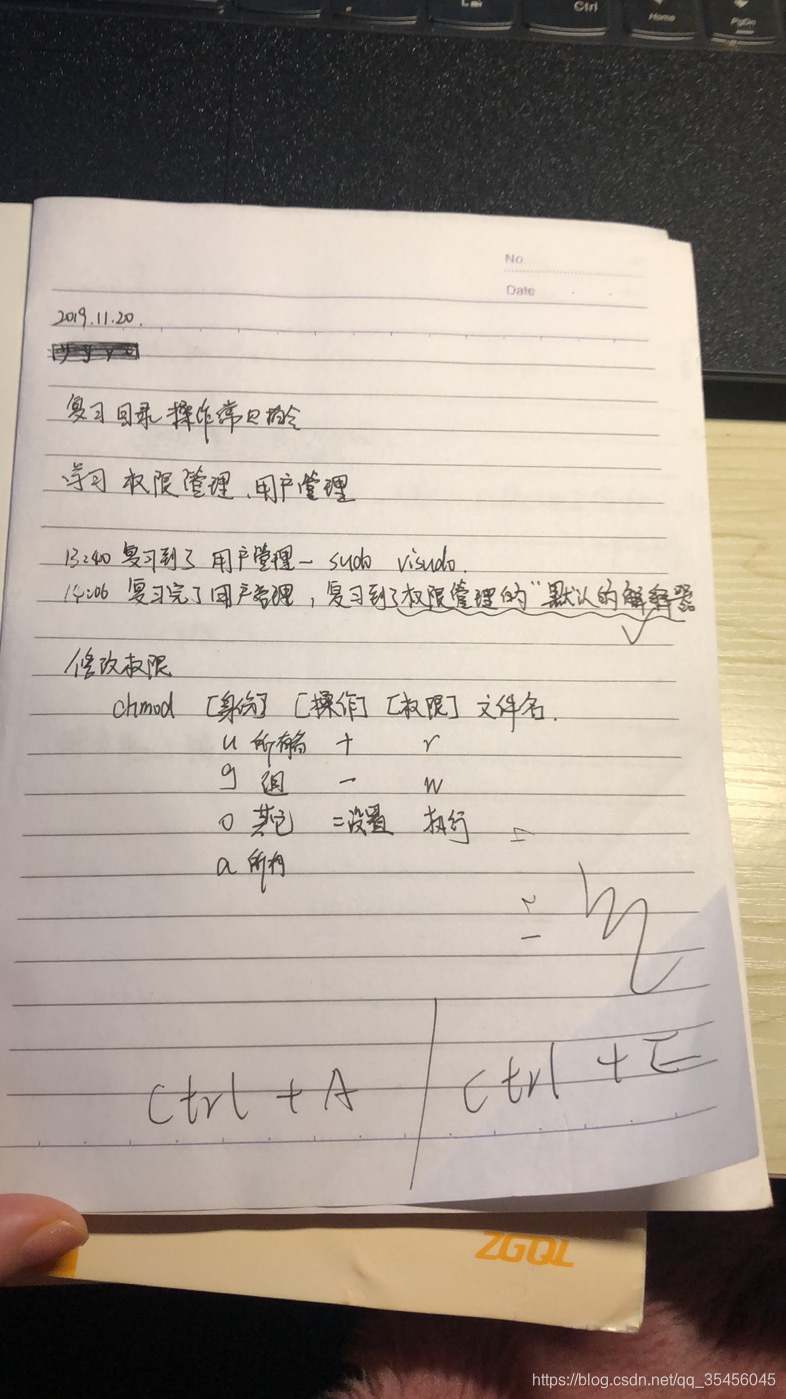 Ctrl
Home
PgDn
No.
Date
2019.11.20.
复习目录操作常见指令
学习 权限管理、用户管理
13:40 复习到了 用户管理— sudo visudo.
14:06 复习完了用户管理，复习到了权限管理的“默认的解释器
修改权限
chmod [身份] [操作] [权限] 文件名.
u 所有者 + r
g 组 - w
o 其它 =设置 执行
a 所有
Ctrl + A
Ctrl + E
ZGQL
https://blog.csdn.net/qq_35456045